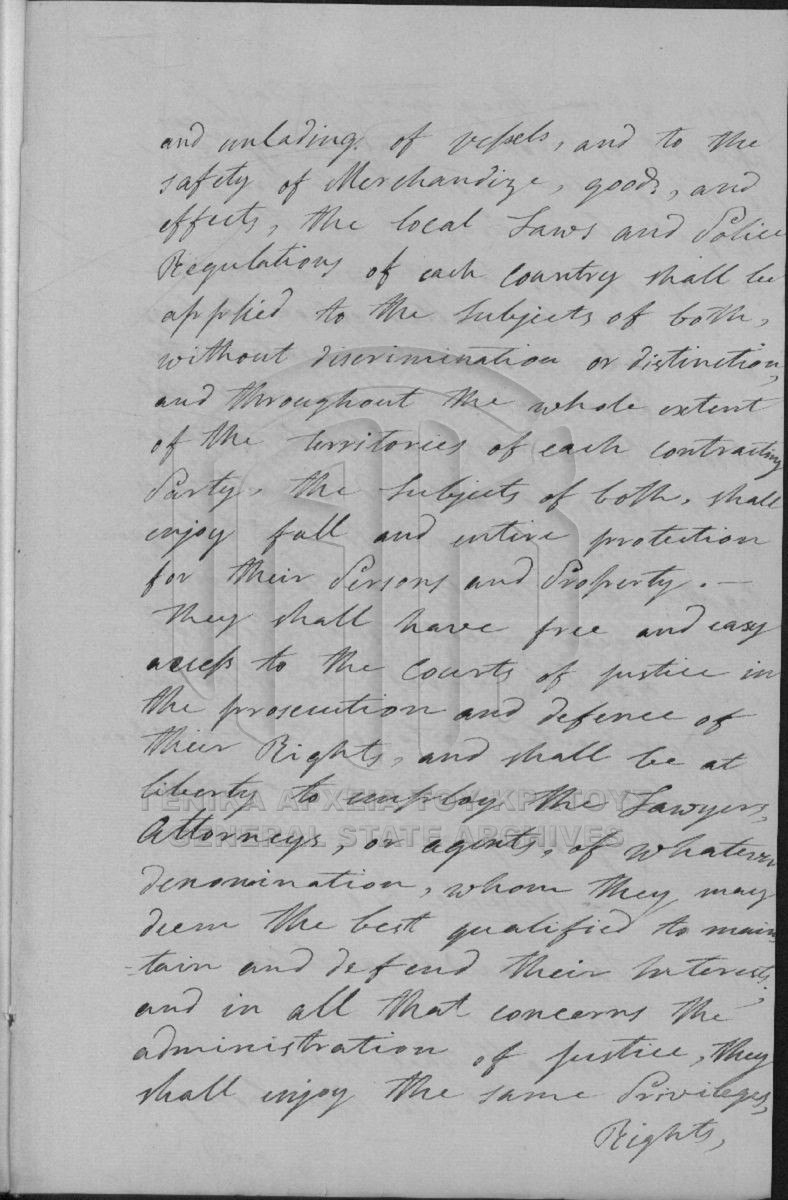 and unlading of vessels, and to the
safety of Merchandize, goods, and
effects, the local Laws and Police
Regulations of each Country shall be
applied to the Subjects of both,
without discrimination or distinction,
and throughout the whole extent
of the territories of each contracting
Party, the Subjects of both, shall
enjoy full and entire protection
for their Persons and Property. —
They shall have free and easy
access to the Courts of justice in
the prosecution and defence of
their Rights, and shall be at
liberty to employ the Lawyers,
Attorneys, or agents, of whatever
denomination, whom they may
deem the best qualified to main-
-tain and defend their Interests;
and in all that concerns the
administration of justice, they
shall enjoy the same Privileges,
Rights,
ΓΕΝΙΚΑ ΑΡΧΕΙΑ ΤΟΥ ΚΡΑΤΟΥΣ
GENERAL STATE ARCHIVES